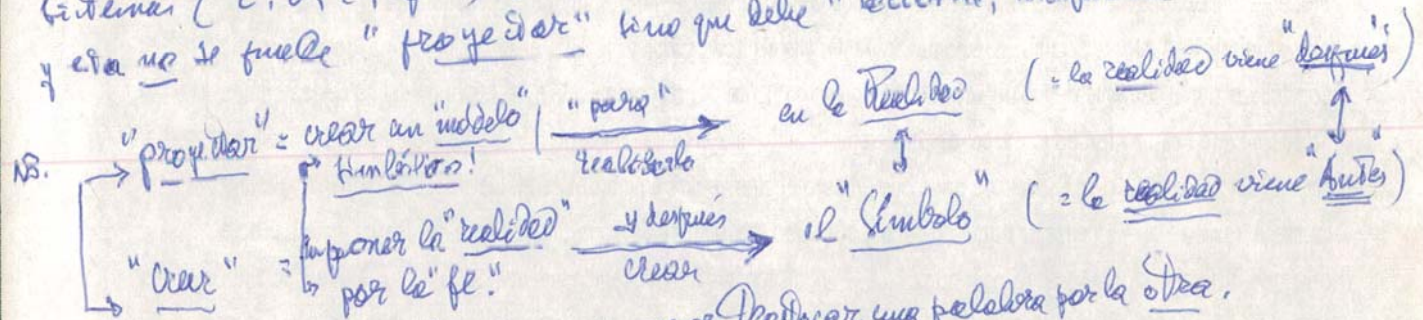 sistemas (
y esta no se puede "proyectar" sino que debe "
NB. "proyectar" = crear un "modelo" simbólico! "para" realizarlo en la Realidad (= la realidad viene "después")
"Crear" = suponer la "realidad" por la "fe" y después crear el "Símbolo" (= la realidad viene "Antes")
una palabra por la otra.